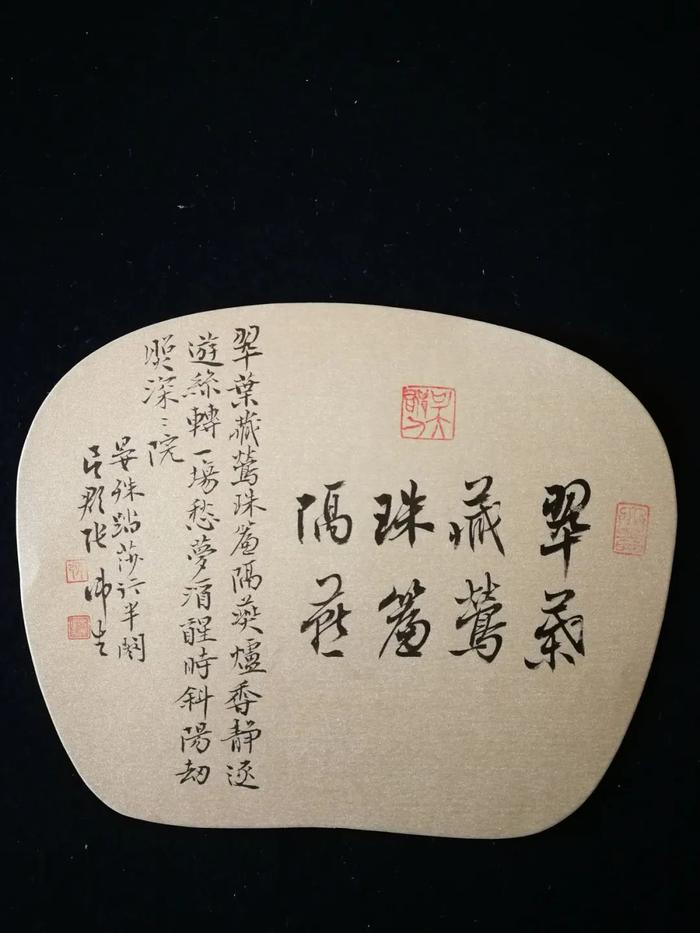 翠葉
藏鶯
珠簾
隔燕
翠葉藏鶯珠簾隔燕爐香靜逐
遊絲轉一場愁夢酒醒時斜陽却
照深〻院
晏殊踏莎行半闋
张沛生